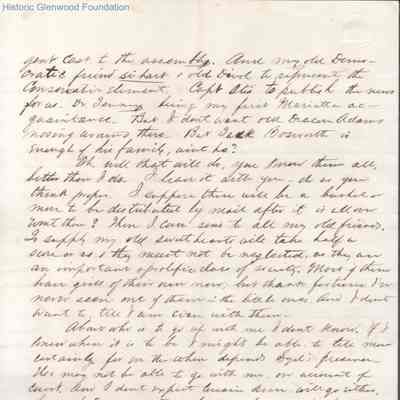 Historic Glenwood Foundation
gent cast to the assembly. And my old Demo-
cratic friend sihart & old Devol to represent the
Conservative element. Capt Otis to publish the news
for us. Dr. being my first Marietta ac-
quaintance. But I dont want old Deacon Adams
nosing around there. But Jack Bosworth is
enough of his family, aint he?
Oh well that will do, you know them all,
better than I do. I leave it with you - do as you
think proper. I suppose there will be a bushel or
more to be distributed by mail after it is all over
wont there? Then I can send to all my old friends.
To supply my old sweethearts will take half a
score or so & they must not be neglected, as they are
an important & prolific class of society. Most of them
have girls of their own now, but thank fortune I've
never seen one of them in the little ones. And I dont
want to, till I am even with them.
About who is to go up with me I dont know. If I
knew when it is to be I might be able to tell more
certainly for on the when depends
He may not be able to go with me, on account of
court. And I dont expect will go either,